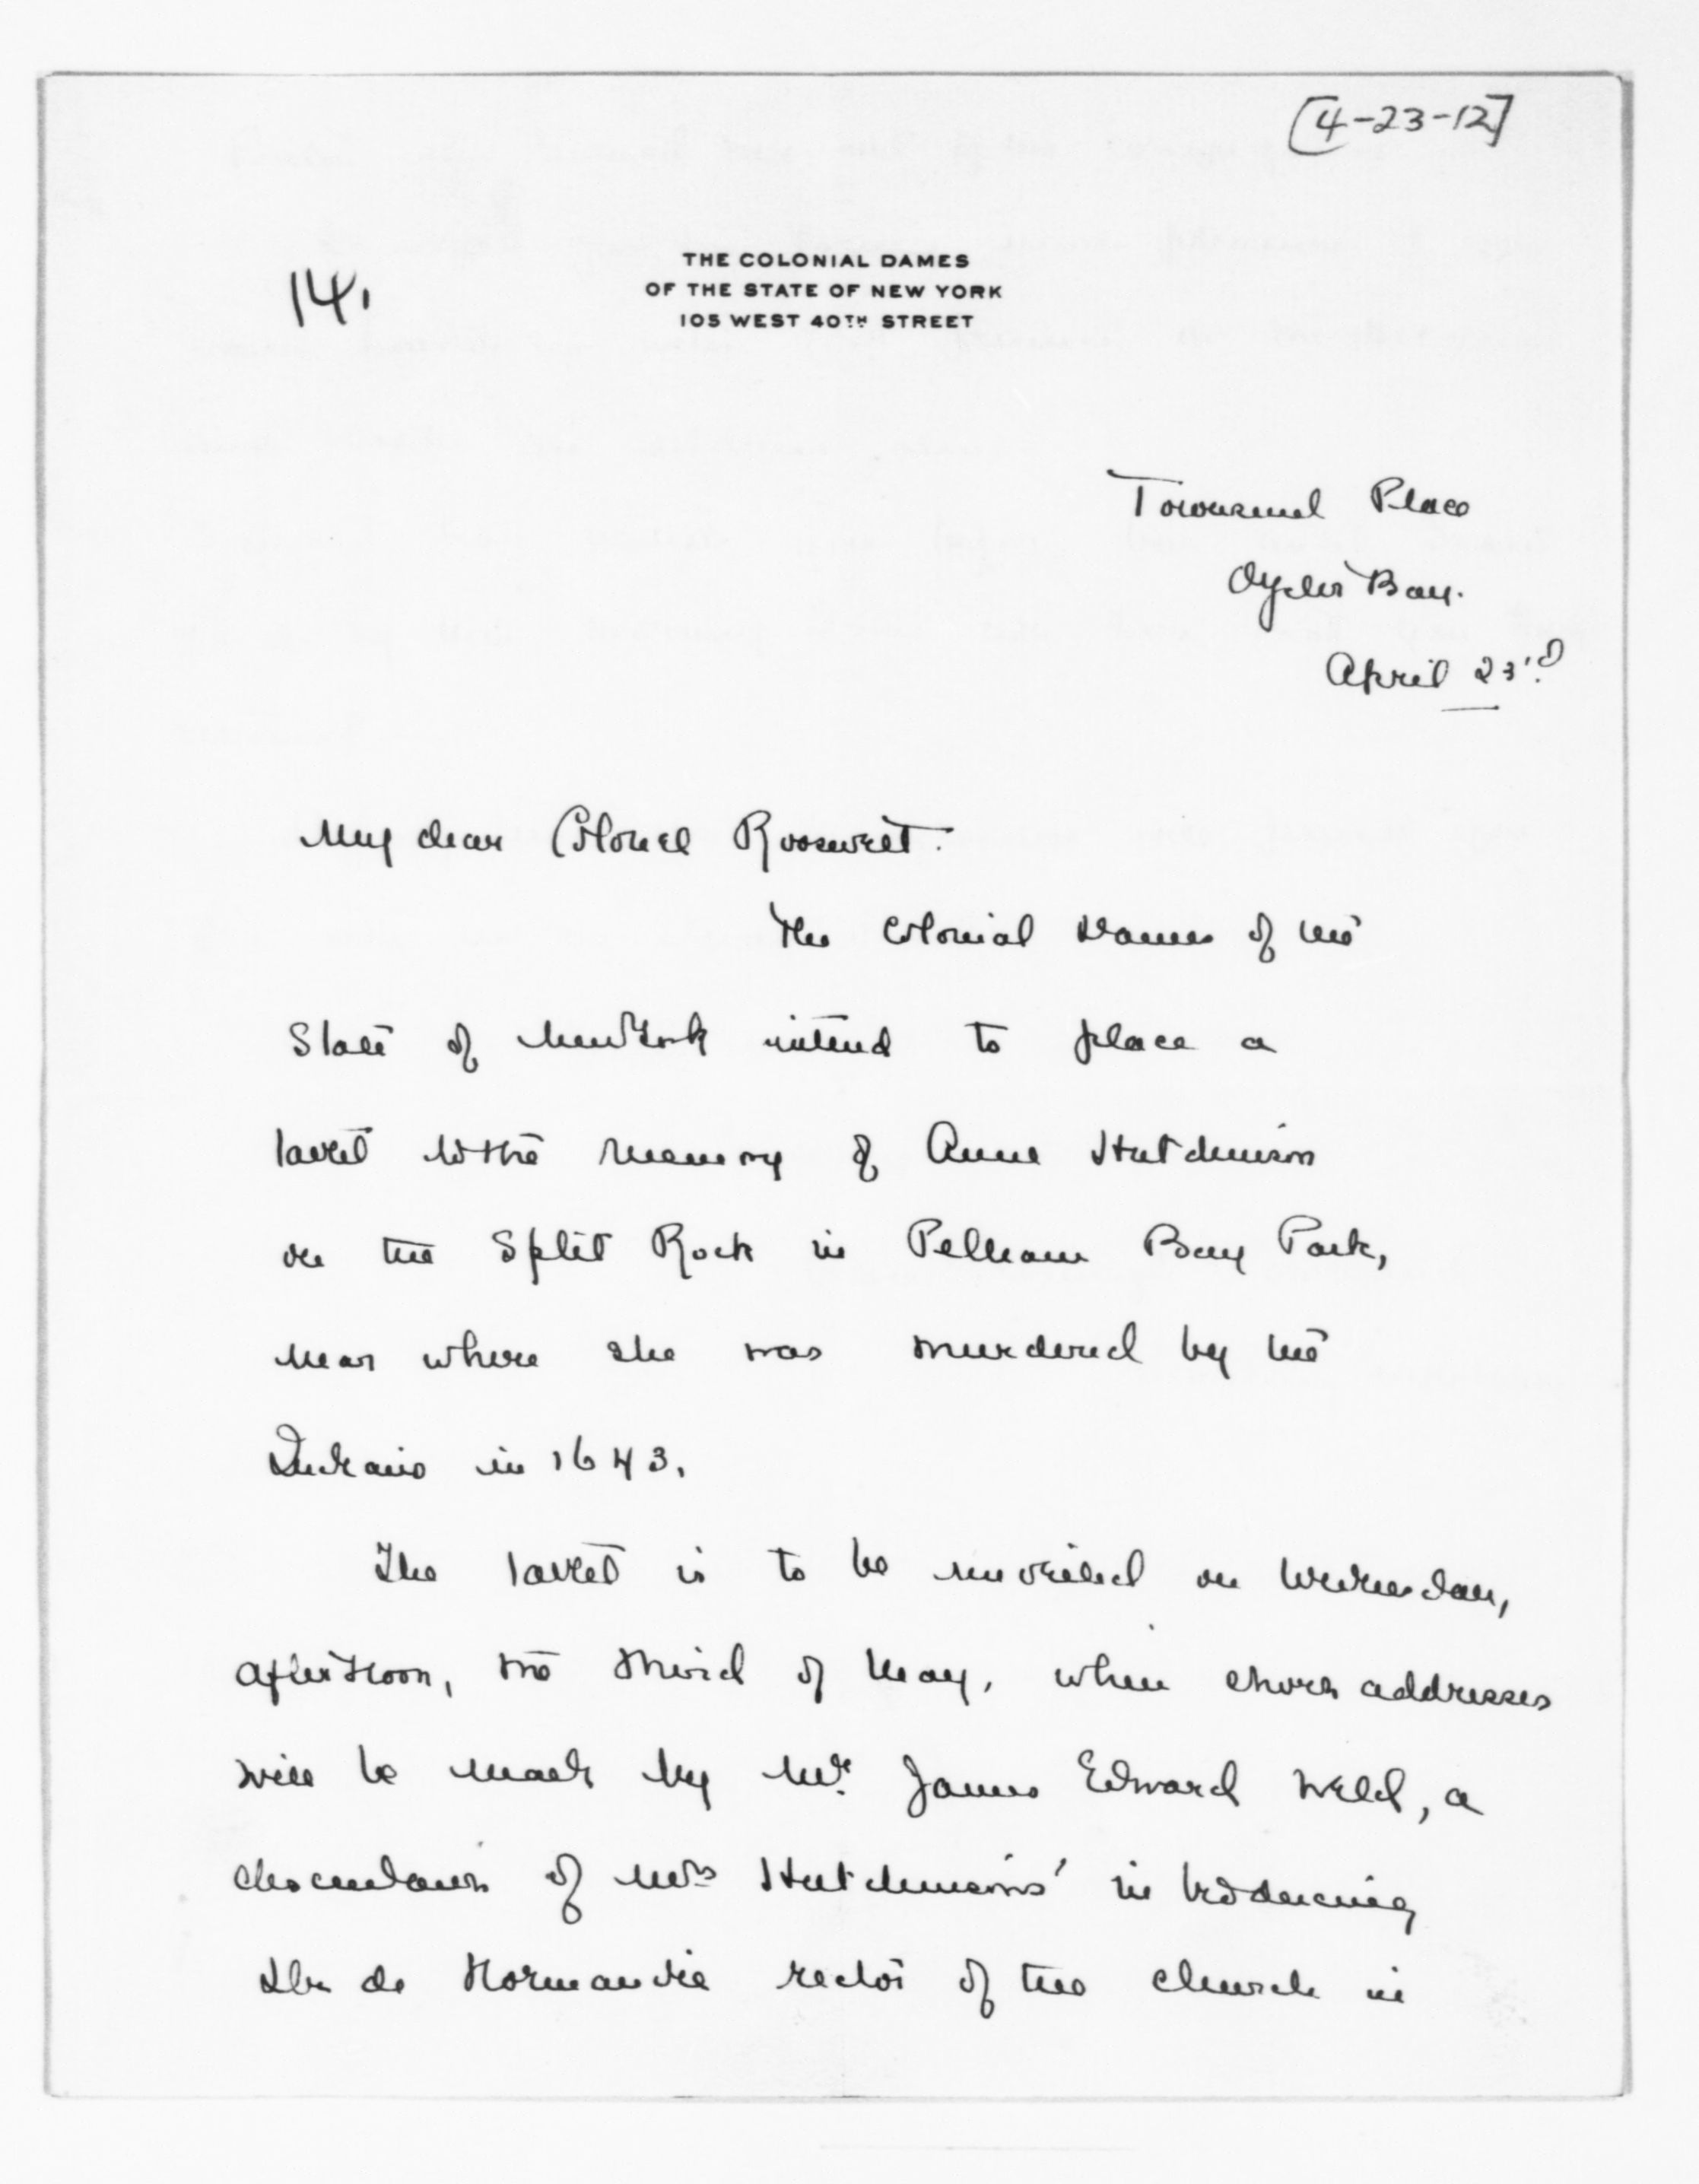 [4-23-12]
14.
THE COLONIAL DAMES
OF THE STATE OF NEW YORK
105 WEST 40TH STREET
Townsend Place
Oyster Bay.
April 23rd
My dear Colonel Roosevelt.
The Colonial Dames of the
State of New York intend to place a
tablet to the memory of Anne Hutchinson
on the Split Rock in Pelham Bay Park,
near where she was murdered by the
Indians in 1643.
The tablet is to be unveiled on Wednesday,
afternoon, the third of May, when short addresses
will be made by Mr. James Edward Weld, a
descendant of Mrs Hutchinsons' introducing
Dr de Normandie rector of the church in